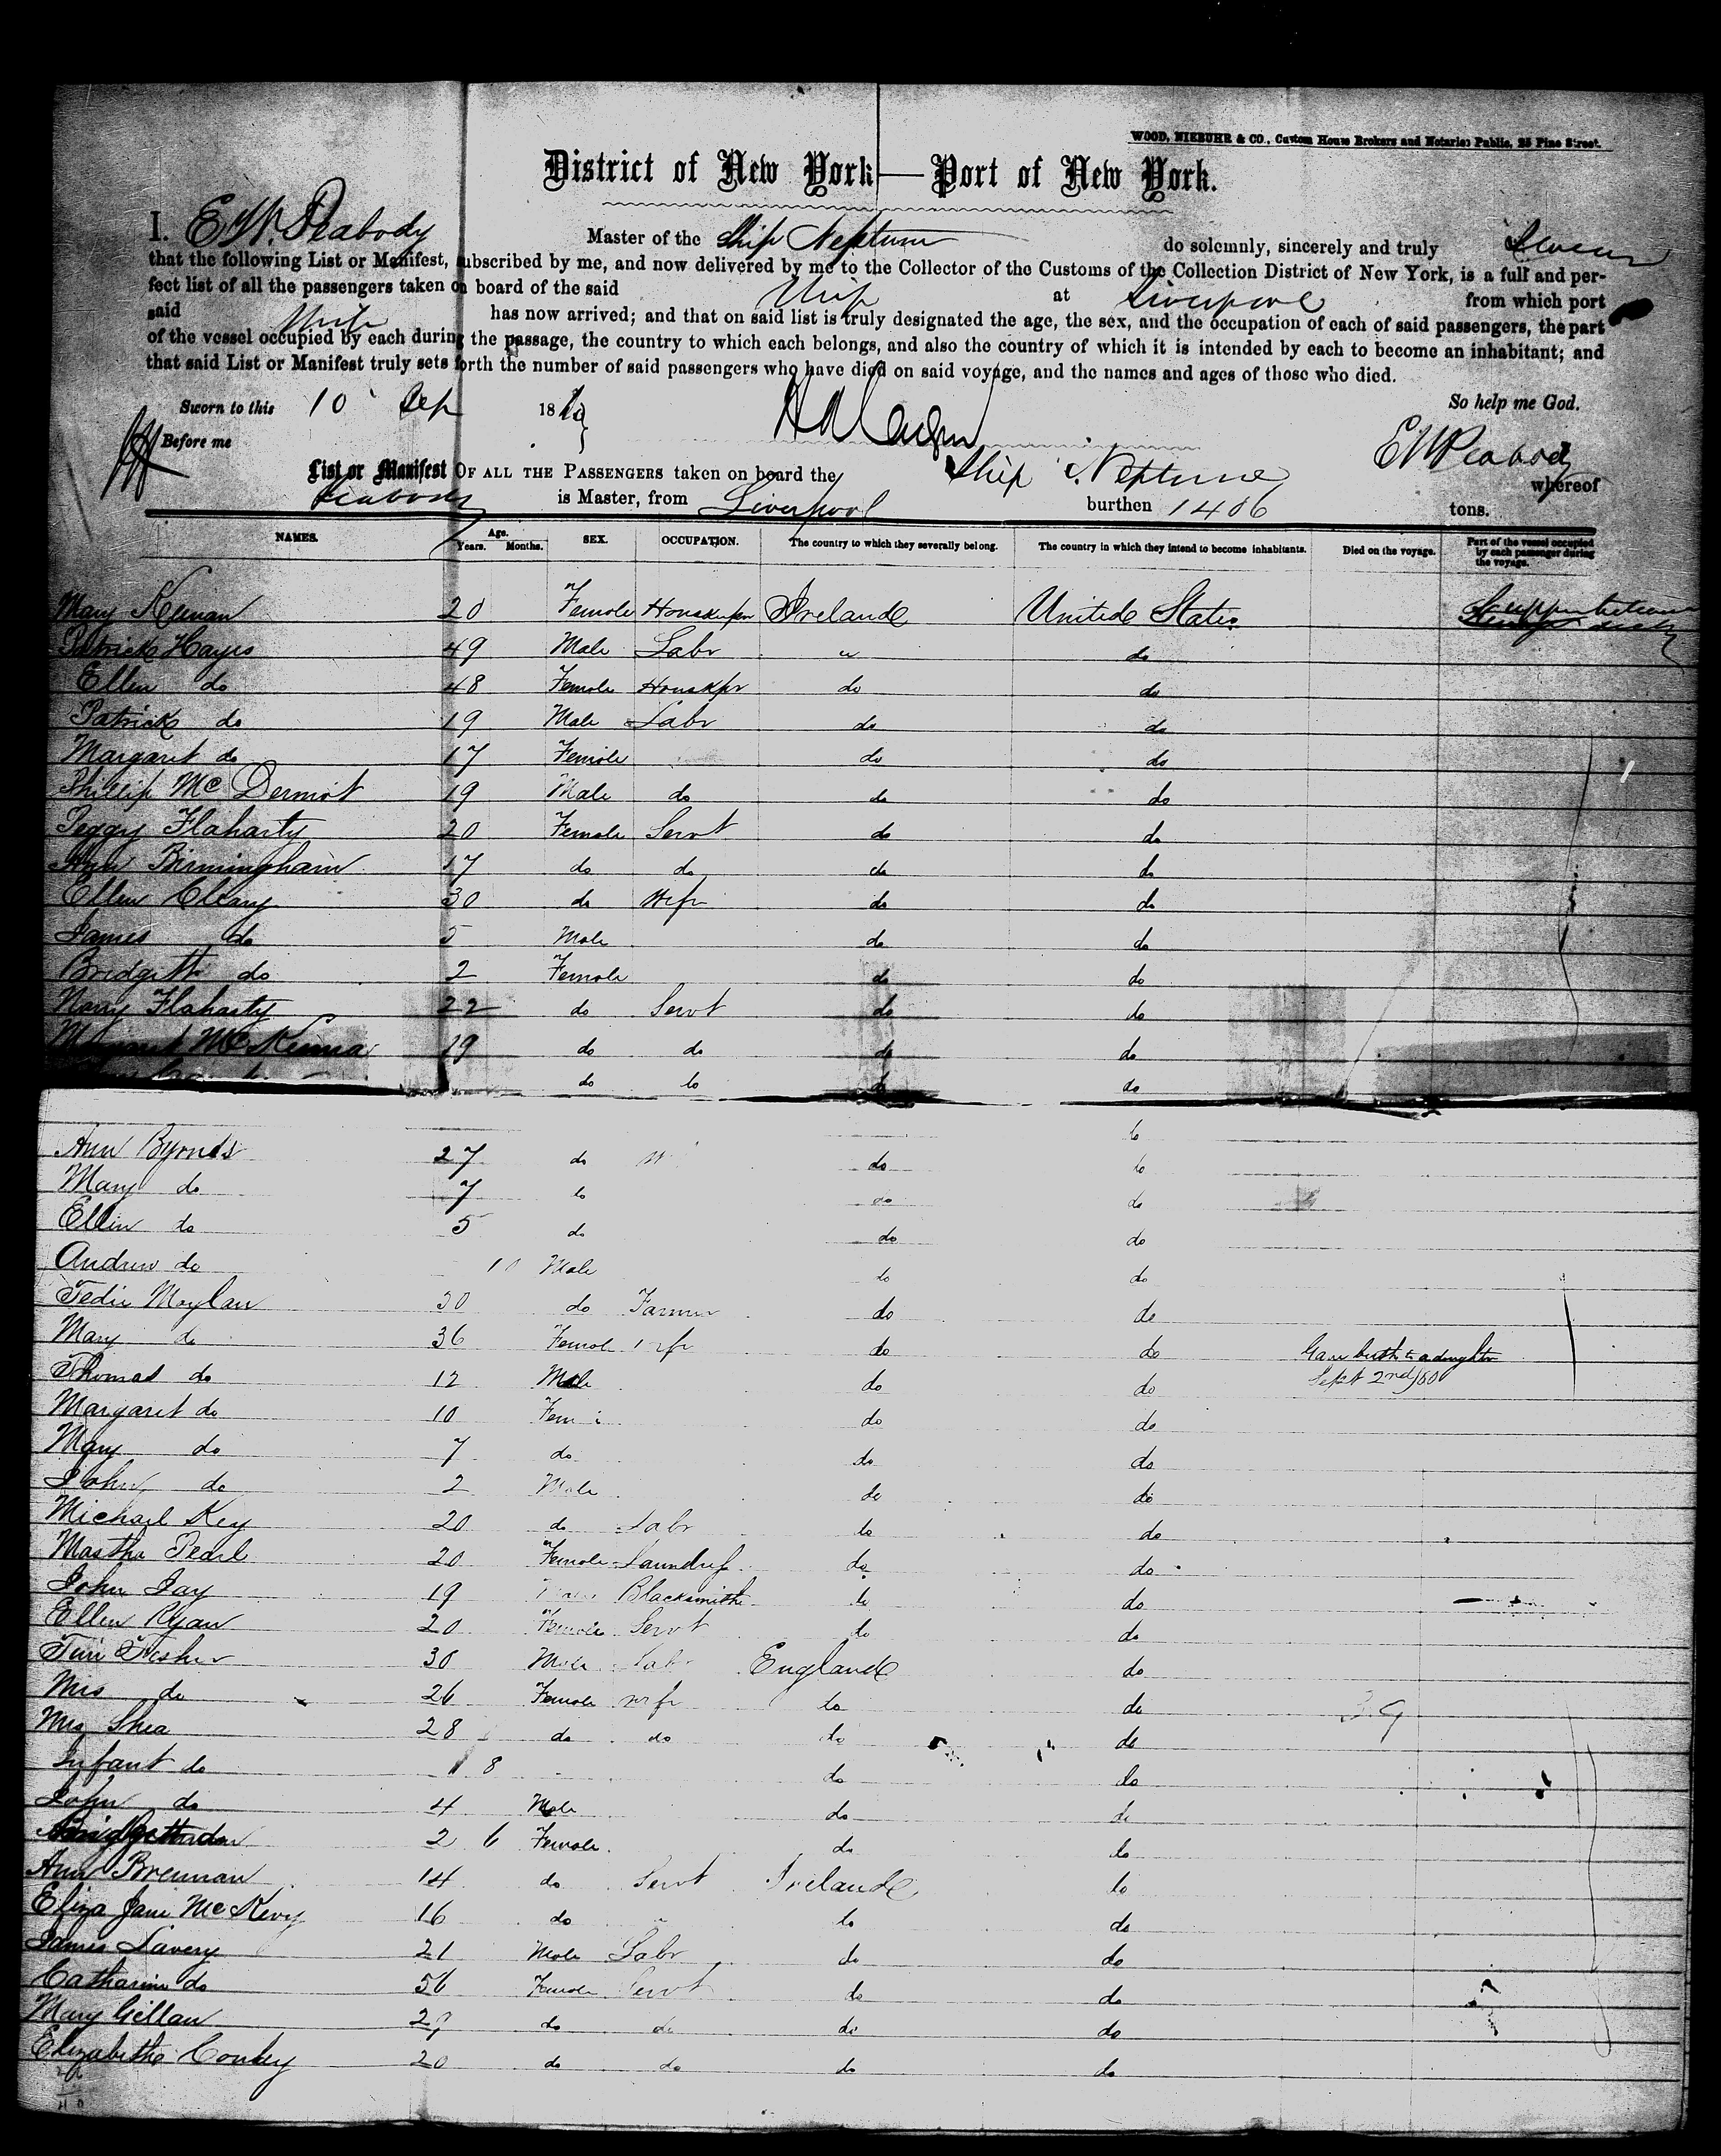 WOOD, NIEBUHR & CO., Custom House Brokers and Notaries Public, 25 Pine Street.
District of New York—Port of New York.
I. E W. Peabody Master of the Ship Neptune do solemnly, sincerely and truly Swear
that the following List or Manifest, subscribed by me, and now delivered by me to the Collector of the Customs of the Collection District of New York, is a full and per-
fect list of all the passengers taken on board of the said Ship at Liverpool from which port
said Ship has now arrived; and that on said list is truly designated the age, the sex, and the occupation of each of said passengers, the part
of the vessel occupied by each during the passage, the country to which each belongs, and also the country of which it is intended by each to become an inhabitant; and
that said List or Manifest truly sets forth the number of said passengers who have died on said voyage, and the names and ages of those who died.
Sworn to this 10 Sep 1860 So help me God.
Before me E W Peabody
List or Manifest OF ALL THE PASSENGERS taken on board the Ship Neptune whereof
Peabody is Master, from Liverpool burthen 1406 tons.
NAMES. Age. Years. Months. SEX. OCCUPATION. The country to which they severally belong. The country in which they intend to become inhabitants. Died on the voyage. Part of the vessel occupied by each passenger during the voyage.
Mary Keenan 20 Female Houskeeper Ireland United States
Patrick Hayes 49 Male Labr " do
Ellen do 48 Female Houskpr do do
Patrick do 19 Male Labr do do
Margaret do 17 Female do do
Phillip McDermot 19 Male do do do
Peggy Flaharty 20 Female Servt do do
Ann Birmingham 17 do do do do
Ellen Cleary 30 do Wife do do
James do 5 Male do do
Bridgett do 2 Female do do
Nany Flaharty 22 do Servt do do
McKenna 19 do do do do
do do do do
do
Ann Byrnes 27 do do do
Mary do 7 do do do
Ellen do 5 do do do
Andrew do Male do do
Tedie Moylan 30 do Farmer do do
Mary do 36 Female Wife do do Gave birth to a daughter
Thomas do 12 Male do do Sept 2nd/60
Margaret do 10 Female do do
Mary do 7 do do do
John do 2 Male do do
Michael Key 20 do Labr do do
Martha Pearl 20 Female Laundress do do
John Jay 19 Male Blacksmith do do
Ellen Ryan 20 Female Servt do do
Fisher 30 Male Labr England do
Mrs do 26 Female Wife do do 39
Mrs Shea 28 do do do do
Infant do 8 do do
John do 4 Male do do
2 6 Female do do
Ann Brennan 14 do Servt Ireland do
Eliza Jane McKevy 16 do " do do
James Lavery 21 Male Labr do do
Catharine do 56 Female Servt do do
Mary Gillan 29 do do do do
Elizabeth Conley 20 do do do do